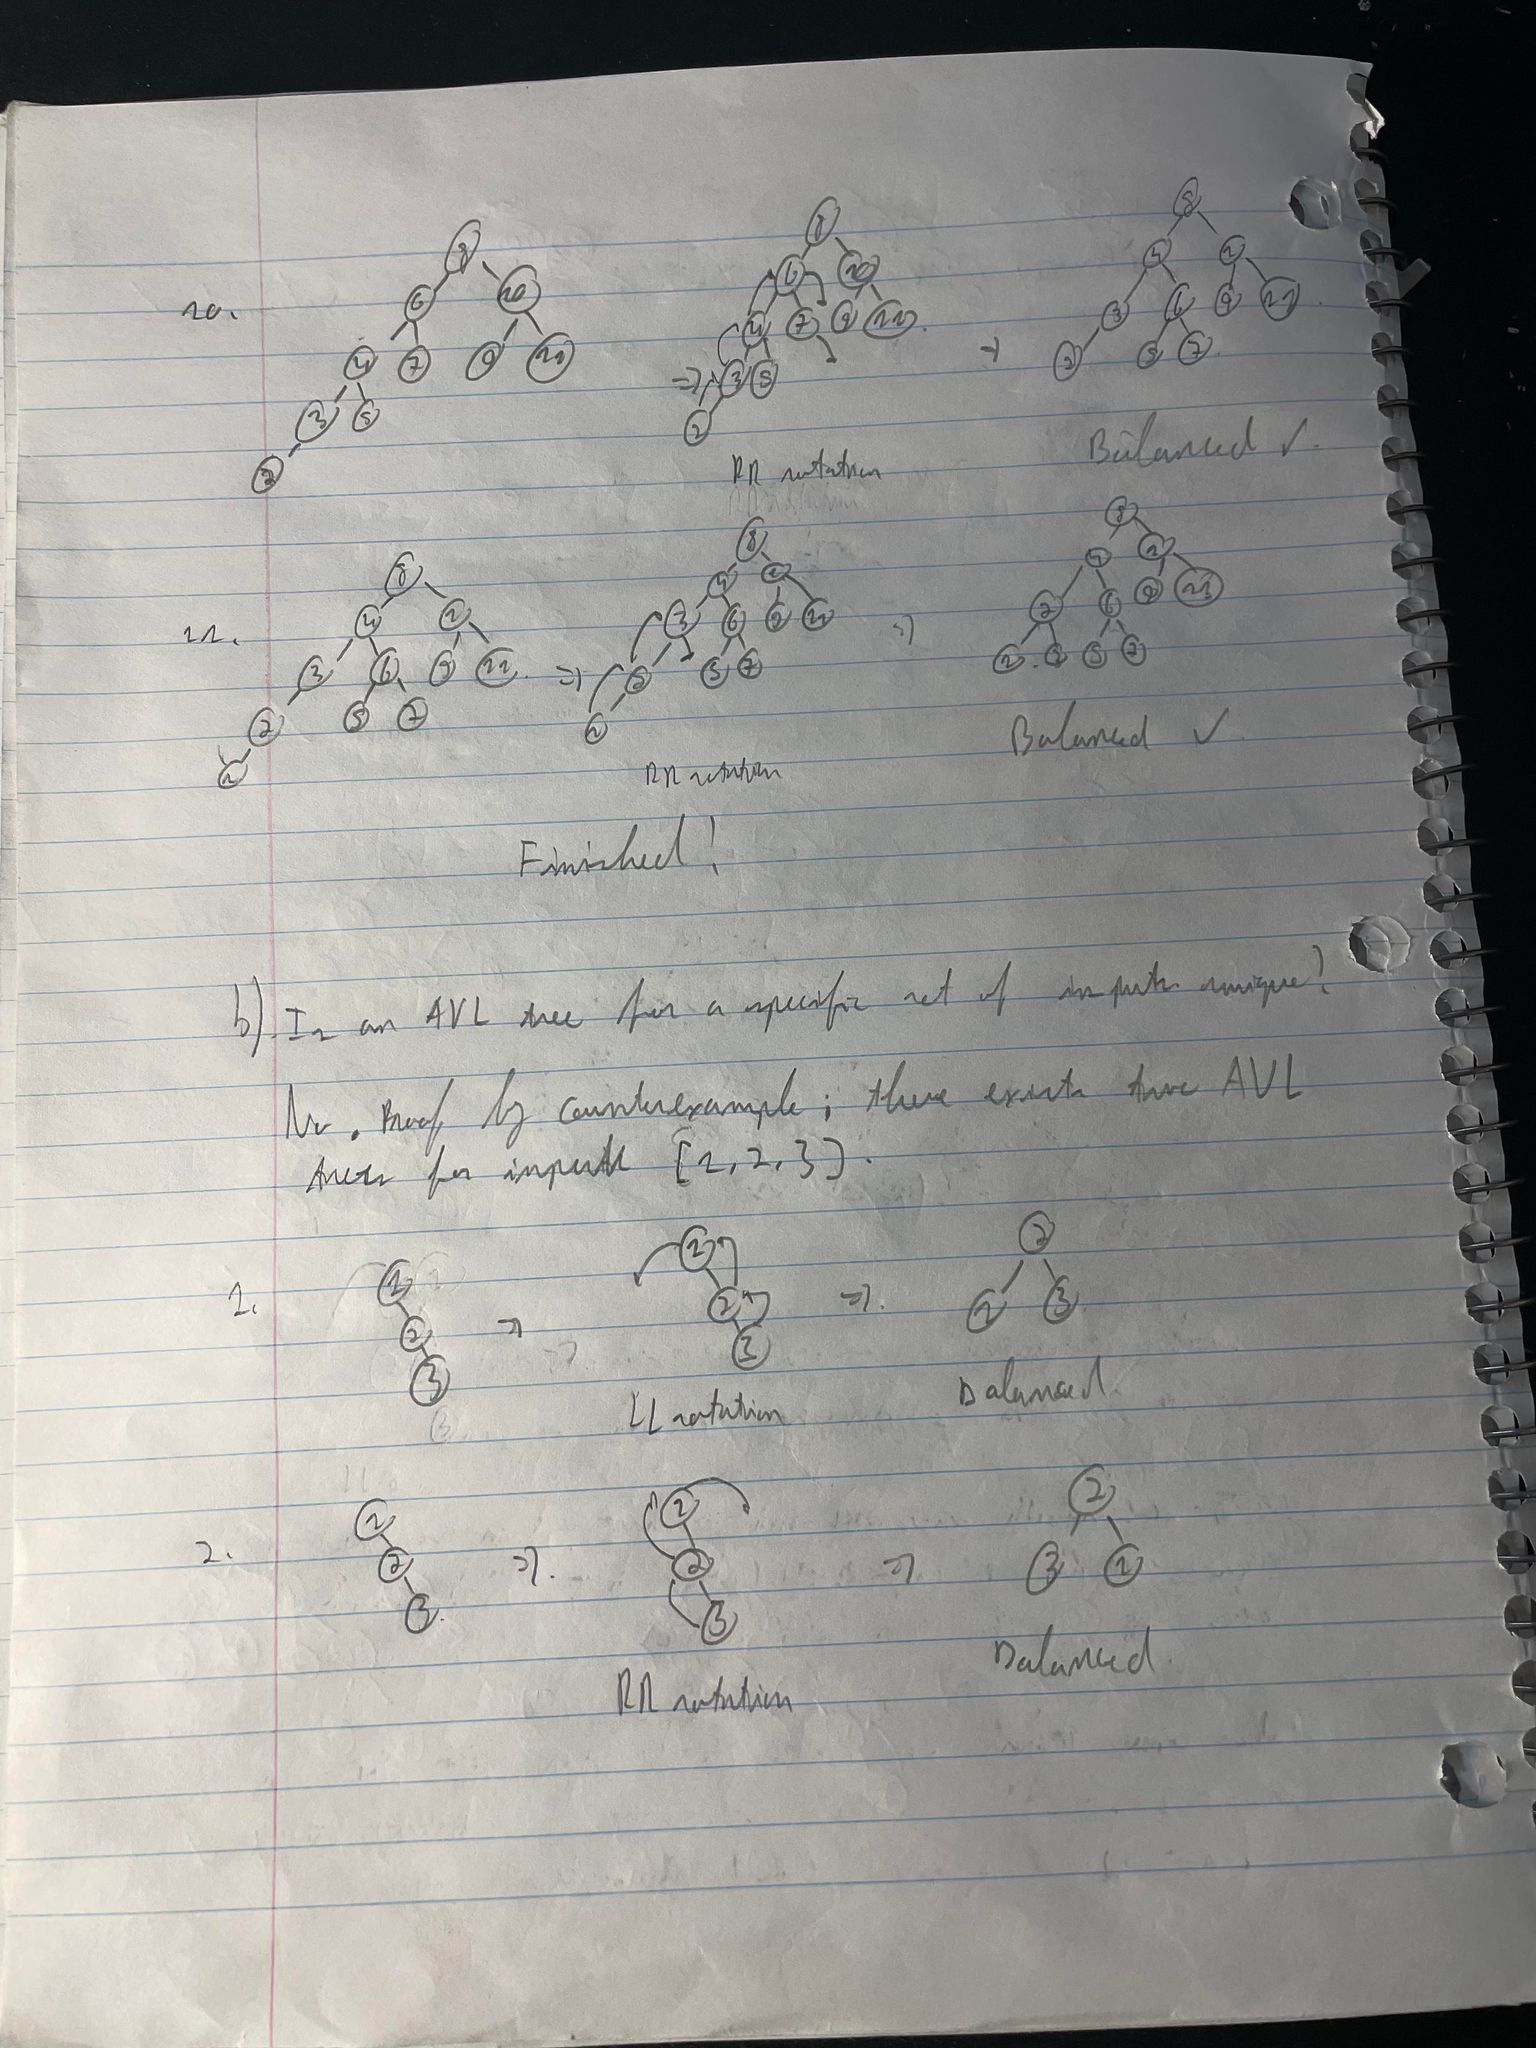 10.
8
6 10
4 7 9 11
3 5
2
=>
8
6 10
4 7 9 11.
3 5
2
RR rotation
=>
8
4 1
3 6 9 11.
2 5 7
Balanced ✓.
11.
8
4 1
3 6 9 11.
2 5 7
1
=>
8
4 1
3 6 9 11
2 5 7
1
RR rotation
=>
8
4 1
2 6 9 11
1 3 5 7
Balanced ✓.
Finished!
b). Is an AVL tree for a specific set of inputs unique?
No. Proof by counterexample; there exists two AVL
trees for inputs [1, 2, 3].
1.
1
2
3
=>
1
2
3
LL rotation
=>.
2
1 3
Balanced.
2.
1
2
3.
=>.
1
2
3
RR rotation
=>
2
3 1
Balanced.